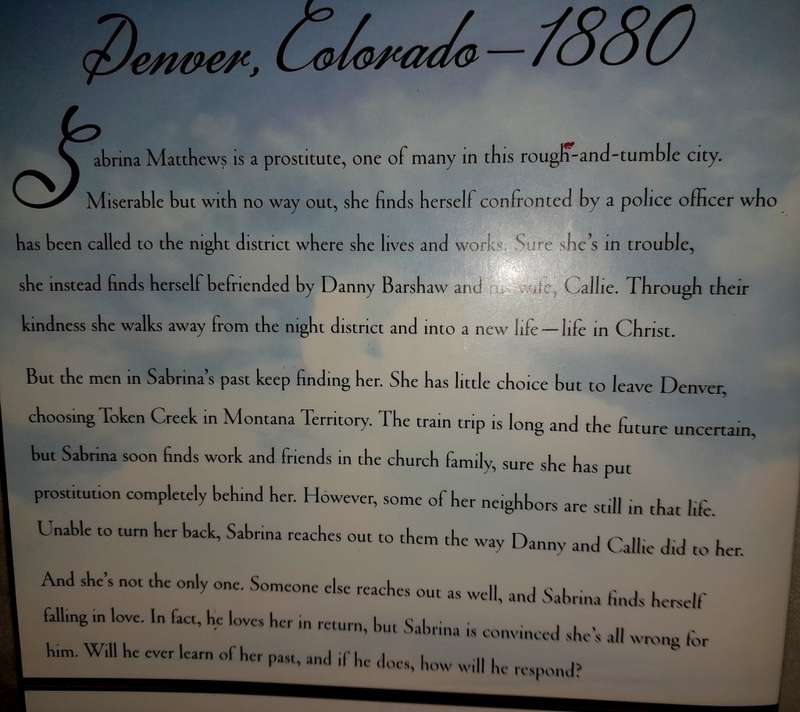 Denver, Colorado—1880
Sabrina Matthews is a prostitute, one of many in this rough-and-tumble city.
Miserable but with no way out, she finds herself confronted by a police officer who
has been called to the night district where she lives and works. Sure she's in trouble,
she instead finds herself befriended by Danny Barshaw and his wife, Callie. Through their
kindness she walks away from the night district and into a new life—life in Christ.
But the men in Sabrina's past keep finding her. She has little choice but to leave Denver,
choosing Token Creek in Montana Territory. The train trip is long and the future uncertain,
but Sabrina soon finds work and friends in the church family, sure she has put
prostitution completely behind her. However, some of her neighbors are still in that life.
Unable to turn her back, Sabrina reaches out to them the way Danny and Callie did to her.
And she's not the only one. Someone else reaches out as well, and Sabrina finds herself
falling in love. In fact, he loves her in return, but Sabrina is convinced she's all wrong for
him. Will he ever learn of her past, and if he does, how will he respond?